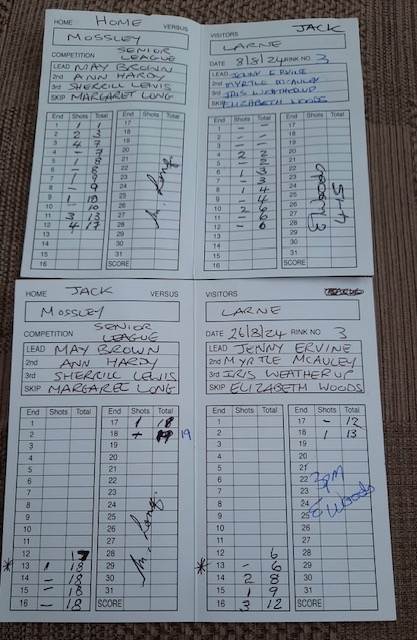 HOME HOME VERSUS
MOSSLEY
COMPETITION SENIOR LEAGUE
LEAD MAY BROWN
2nd ANN HARDY
3rd SHERRILL LEWIS
SKIP MARGARET LONG
End Shots Total End Shots Total
1 1 1 17
2 2 3 18
3 4 7 19
4 - 7 20
5 1 8 21
6 - 8 22
7 1 9 23
8 - 9 24
9 1 10 25
10 - 10 26
11 3 13 27
12 4 17 28
13 29
14 30
15 31
16 SCORE
M. Long
VISITORS JACK
LARNE
DATE 8/8/24 RINK NO 3
LEAD JENNY ERVINE
2nd MYRTLE MCAULEY
3rd IRIS WEATHERUP
SKIP ELIZABETH WOODS
End Shots Total End Shots Total
1 - - 17
2 - - 18
3 - - 19
4 2 2 20
5 - 2 21
6 1 3 22
7 - 3 23
8 1 4 24
9 - 4 25
10 2 6 26
11 - 6 27
12 - 6 28
13 29
14 30
15 31
16 SCORE
HOME JACK VERSUS
MOSSLEY
COMPETITION SENIOR LEAGUE
LEAD MAY BROWN
2nd ANN HARDY
3rd SHERRILL LEWIS
SKIP MARGARET LONG
End Shots Total End Shots Total
1 17 1 18
2 18 19
3 19
4 20
5 21
6 22
7 23
8 24
9 25
10 26
11 27
12 17 28
13 1 18 29
14 - 18 30
15 - 18 31
16 - 18 SCORE
M. Long
VISITORS
LARNE
DATE 26/8/24 RINK NO 3
LEAD JENNY ERVINE
2nd MYRTLE MCAULEY
3rd IRIS WEATHERUP
SKIP ELIZABETH WOODS
End Shots Total End Shots Total
1 17 - 12
2 18 1 13
3 19
4 20
5 21
6 22
7 23
8 24
9 25
10 26
11 27
12 6 28
13 - 6 29
14 2 8 30
15 1 9 31
16 3 12 SCORE
3pm
E Woods